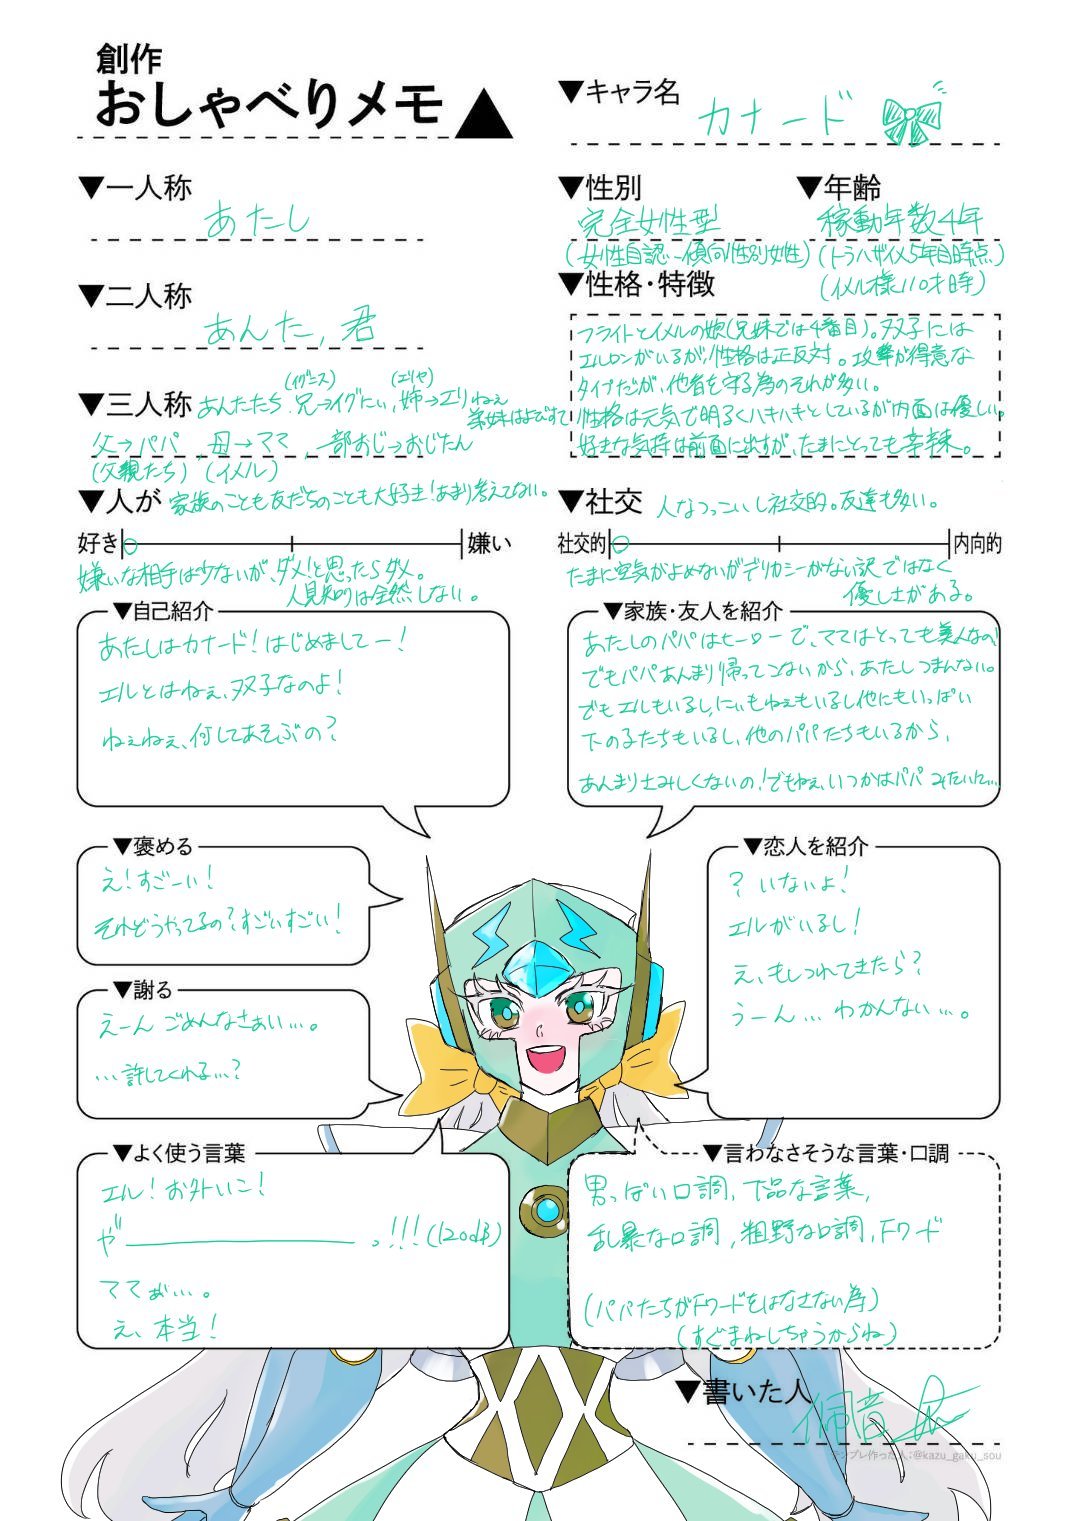 創作
おしゃべりメモ▲
▼キャラ名
カナード
▼一人称
あたし
▼性別
完全女性型
(女性自認-傾向性別女性)
▼年齢
稼動年数4年
(トラハザイメ5年目時点)
(イメル様110才時)
▼二人称
あんた, 君
▼性格・特徴
フライトとイメルの娘(兄妹では4番目)。双子には
エルロンがいるが、性格は正反対。攻撃が得意な
タイプだが、他者を守る為のそれが多い。
性格は元気で明るくハキハキとしているが内面は優しい。
好きな気持は前面に出すが、たまにとっても辛辣。
▼三人称
(イグニス) (エリヤ)
あんたたち、兄→イグにぃ, 姉→エリねぇ
弟妹はよびすて
父→パパ, 母→ママ, 一部おじ→おじたん
(父親たち) (イメル)
▼人が
家族のことも友だちのことも大好き!あまり考えてない。
好き 嫌い
嫌いな相手は少ないが、ダメ!と思ったらダメ。
人見知りは全然しない。
▼社交
人なつっこいし社交的。友達も多い。
社交的 内向的
たまに空気がよめないがデリカシーがない訳ではなく
優しさがある。
▼自己紹介
あたしはカナード!はじめましてー!
エルとはねぇ、双子なのよ!
ねぇねぇ、何してあそぶの?
▼家族・友人を紹介
あたしのパパはヒーローで、ママはとっても美人なの!
でもパパあんまり帰ってこないから、あたしつまんない。
でもエルもいるし、にぃもねぇもいるし他にもいっぱい
下の子たちもいるし、他のパパたちもいるから、
あんまりさみしくないの!でもねぇ、いつかはパパみたいに…
▼褒める
え!すごーい!
それどうやってるの?すごいすごい!
▼恋人を紹介
? いないよ!
エルがいるし!
え、もしつれてきたら?
うーん… わかんない…。
▼謝る
えーん ごめんなさぁい…。
…許してくれる…?
▼よく使う言葉
エル!お外いこ!
や゛――――――――っ!!!(120dB)
ママぁ…。
え、本当!
▼言わなさそうな言葉・口調
男っぽい口調, 下品な言葉,
乱暴な口調, 粗野な口調, Fワード
(パパたちがFワードをはなさない為)
(すぐまねしちゃうからね)
▼書いた人
佩音
テンプレ作った人:@kazu_gaku_sou